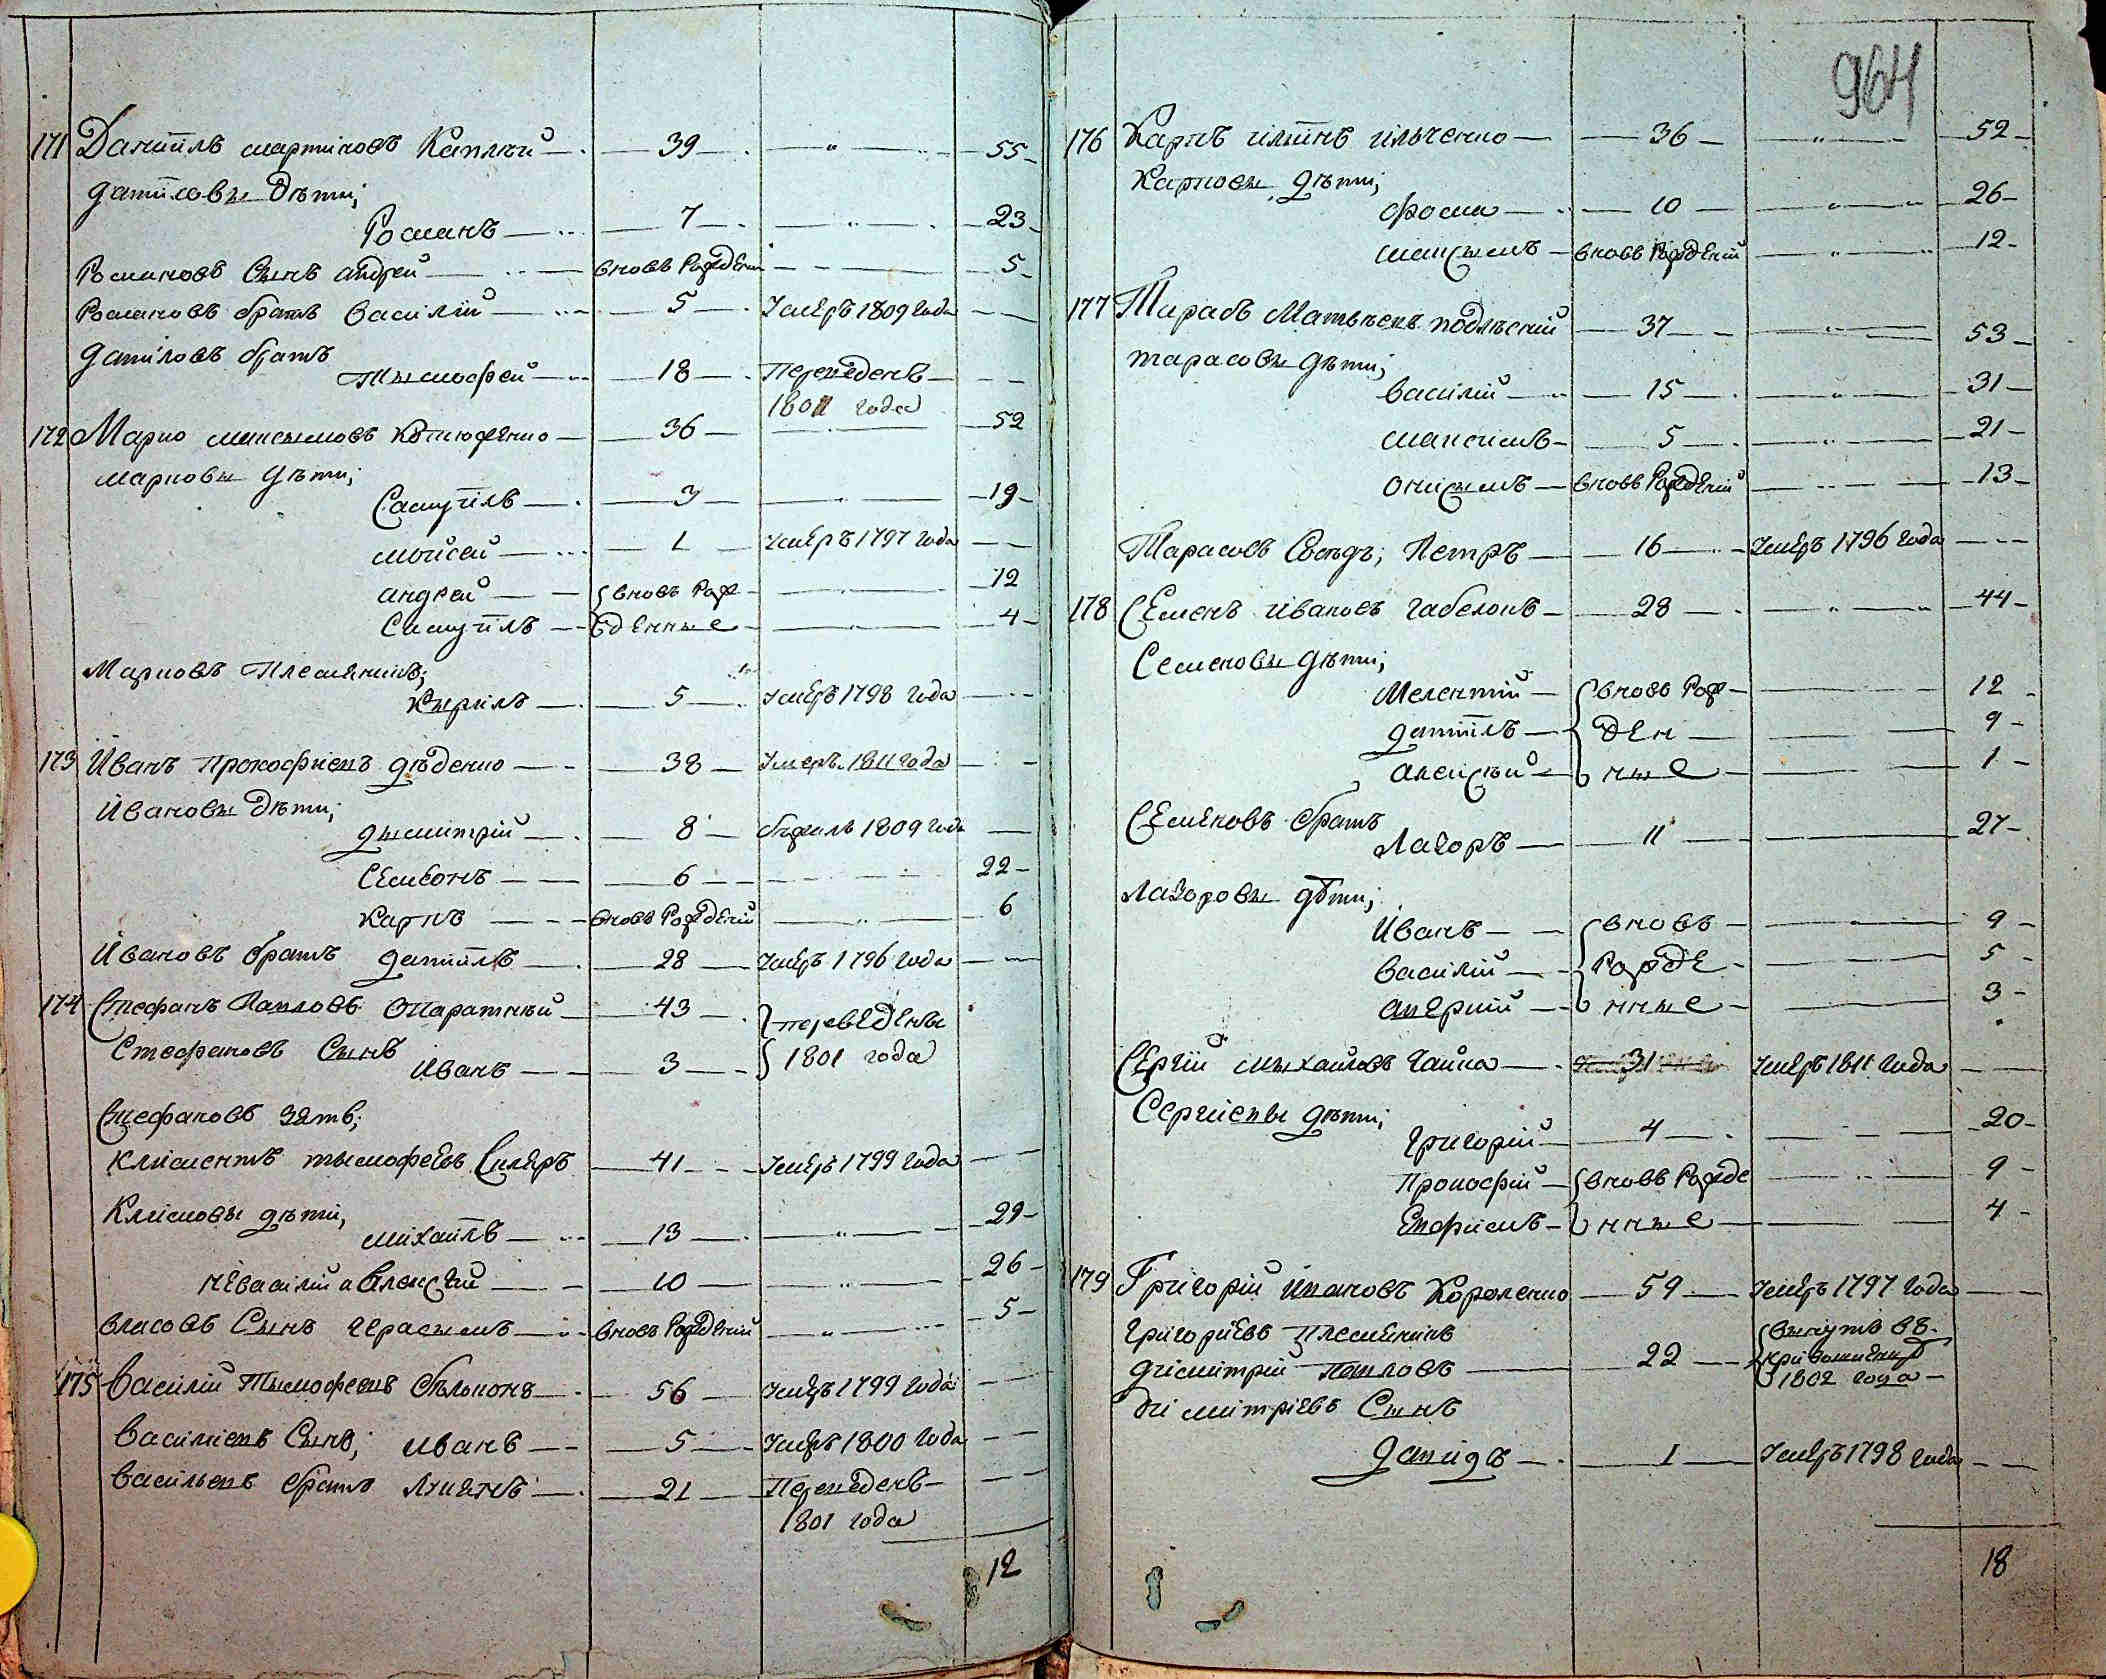 171 Даніилъ мартиновъ Каплѣй — 39 — „ — 55
даніиловы дѣти;
Романъ — 7 — „ — 23
Романовъ Сынъ андрей — вновь рожденій — 5
Романовъ братъ василій — 5 — Умеръ 1809 года — —
даніловъ братъ
Тымофей — 18 — Переведенъ — —
1801 года
172 Марко максымовъ — 36 — 52
марковы дѣти;
Самуілъ — 3 — „ — 19
мойсей — 1 — Умеръ 1797 года — —
андрей — вновь рож — 12
Самуілъ — денные — 4
Марковъ Племенникъ;
Кырилъ — 5 — Умеръ 1798 года — —
173 Иванъ прокофиевъ дѣденко — 38 — Умеръ 1811 года — —
Ивановы дѣти;
дымитрій — 8 — 1809 года —
Семіонъ — 6 — 22
Карпъ — вновь рожденій — „ — 6
Ивановъ братъ даніилъ — 28 — Умеръ 1796 года — —
174 Стефанъ Павловъ — 43 — переведены
Стефановъ Сынъ Иванъ — 3 — 1801 года
Стефановъ зять;
климентъ тымофеевъ Скляръ — 41 — Умеръ 1799 года — —
Климовы дѣти,
михаилъ — 13 — „ — 29
невасилій а алексѣй — 10 — „ — 26
власовъ Сынъ герасымъ — вновь рожденій — „ — 5
175 Василій Тымофеевъ — 56 — Умеръ 1799 года — —
Василиевъ Сынъ; иванъ — 5 — Умеръ 1800 года — —
васильевъ братъ Лукянъ — 21 — Переведенъ — —
1801 года
12
964
176 Карпъ ілиинъ ілченко — 36 — „ — 52
Карповы дѣти;
фома — 10 — „ — 26
максымъ — вновь рожденій — „ — 12
177 Тарасъ Матвѣевъ подлѣсній — 37 — „ — 53
тарасовы дѣти;
василій — 15 — „ — 31
максимъ — 5 — „ — 21
онисымъ — вновь рожденій — 13
Тарасовъ Сосѣдъ; Петръ — 16 — Умеръ 1796 года — —
178 Семенъ івановъ габелокъ — 28 — „ — 44
Семеновы дѣти;
Мелентій — вновь рож — 12
даніилъ — ден — 9
алексѣй — ные — 1
Семеновъ братъ
Лазоръ — 11 — 27
Лазоровы дѣти;
Иванъ — вновь — 9
василій — рожде — 5
аверкий — нные — 3
Сергій мыхайловъ Чайка — 31 — Умеръ 1811 года — —
Сергиевы дѣти;
григорій — 4 — 20
Прокофій — вновь рожде — 9
Еффимъ — нные — 4
179 Григорій Ивановъ Короленко — 59 — Умеръ 1797 года — —
григориевъ племенникъ
дисмитрій Павловъ — 22 — 1802 года —
дисмитріевъ Сынъ
давидъ — 1 — Умеръ 1798 года — —
18